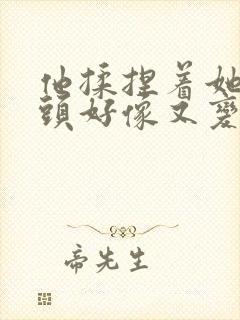 他揉捏着她
頭好像又變
帝先生